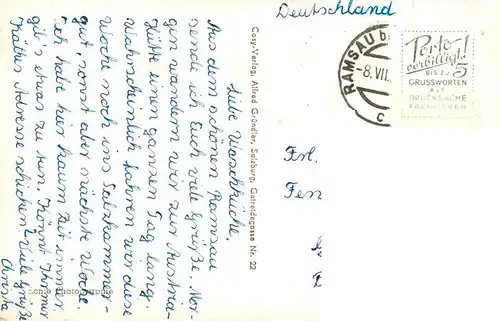 Deutschland
RAMSAU b.
-8.VII.
c
Porto
verbilligt!
BIS ZU 5
GRUSSWORTEN
ALS
DRUCKSACHE
FRANKIEREN
Frl.
Fen
Liebe Waschküche.
Aus dem schönen Ramsau
send ich Euch viele Grüße. Mor-
gen wandern wir zur Austria-
Hütte einen ganzen Tag lang.
Wahrscheinlich fahren wir diese
Woche noch ins Salzkammer-
gut, sonst aber nächste Woche.
Ich habe hier kaum Zeit immer
gil's etwas zu tun. Könnt Ihr mir
Käthes Adresse schicken? Viele Grüße
Christa
Cosy-Verlag, Alfred Gründler, Salzburg, Getreidegasse Nr. 22
Echte Photographie